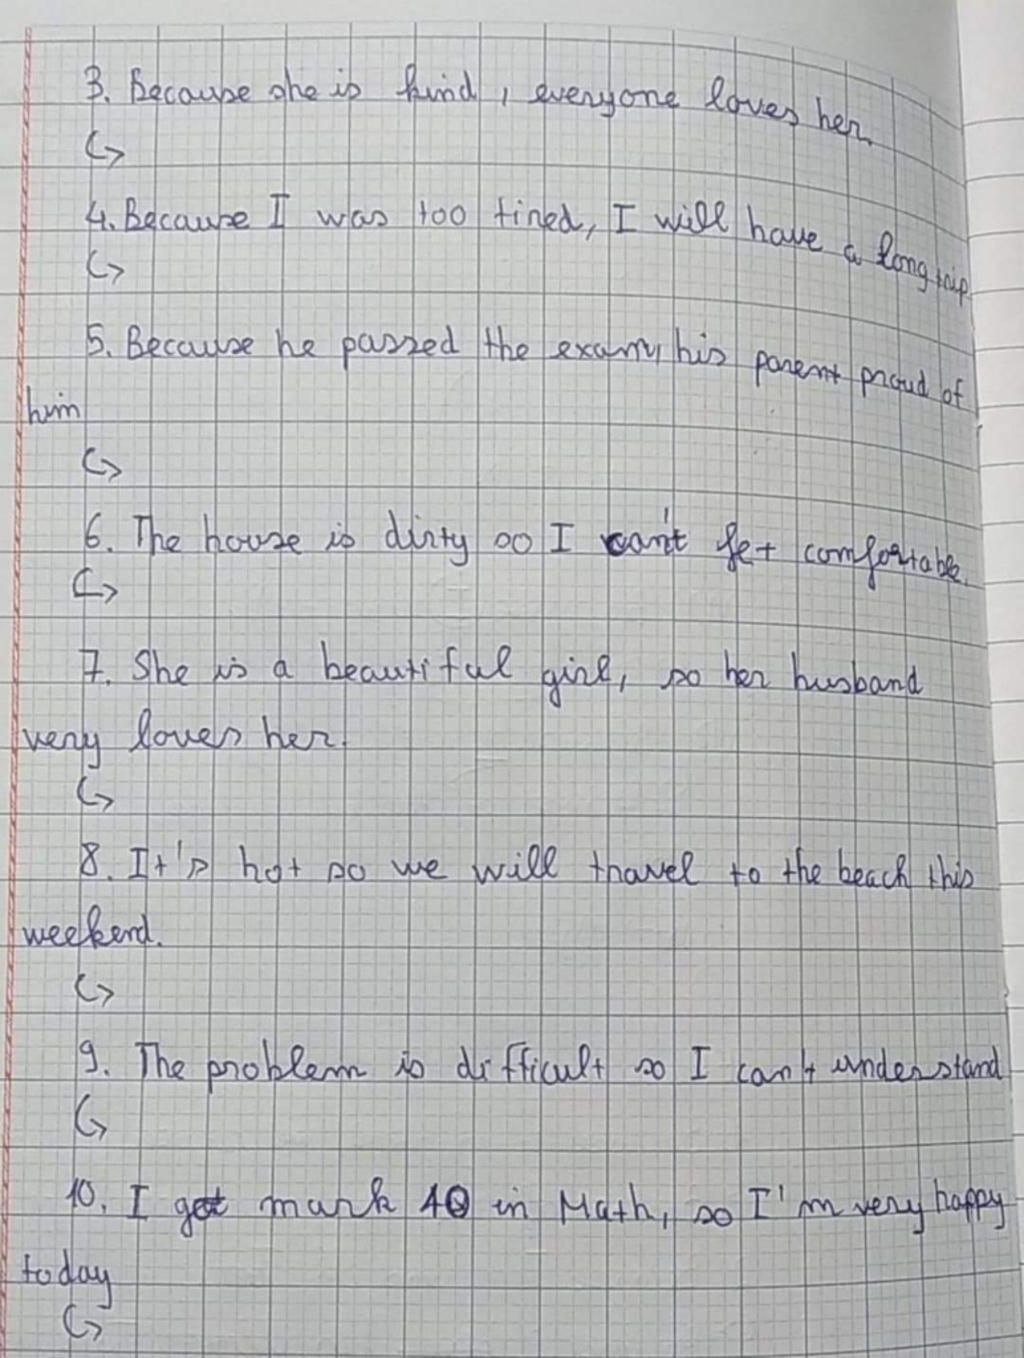 3. Because she is kind, everyone loves her.
↪
4. Because I was too tired, I will have a long trip
↪
5. Because he passed the exam, his parent proud of
him
↪
6. The house is dirty so I can't fet comfortable.
↪
7. She is a beautiful girl, so her husband
very loves her.
↪
8. It's hot so we will travel to the beach this
weekend.
↪
9. The problem is difficult so I can't understand
↪
10. I got mark 10 in Math, so I'm very happy
today
↪